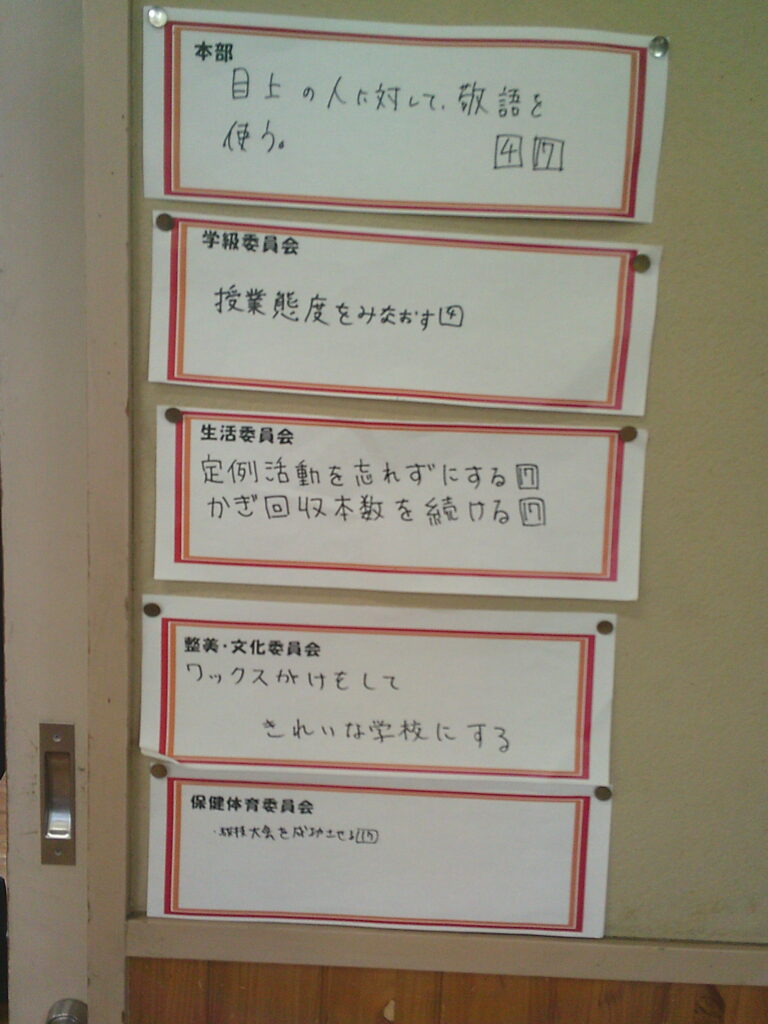 本部
目上の人に対して、敬語を
使う。 4 17
学級委員会
授業態度をみなおす 4
生活委員会
定例活動を忘れずにする 17
かぎ回収本数を続ける 17
整美・文化委員会
ワックスがけをして
きれいな学校にする
保健体育委員会
大会を成功させる